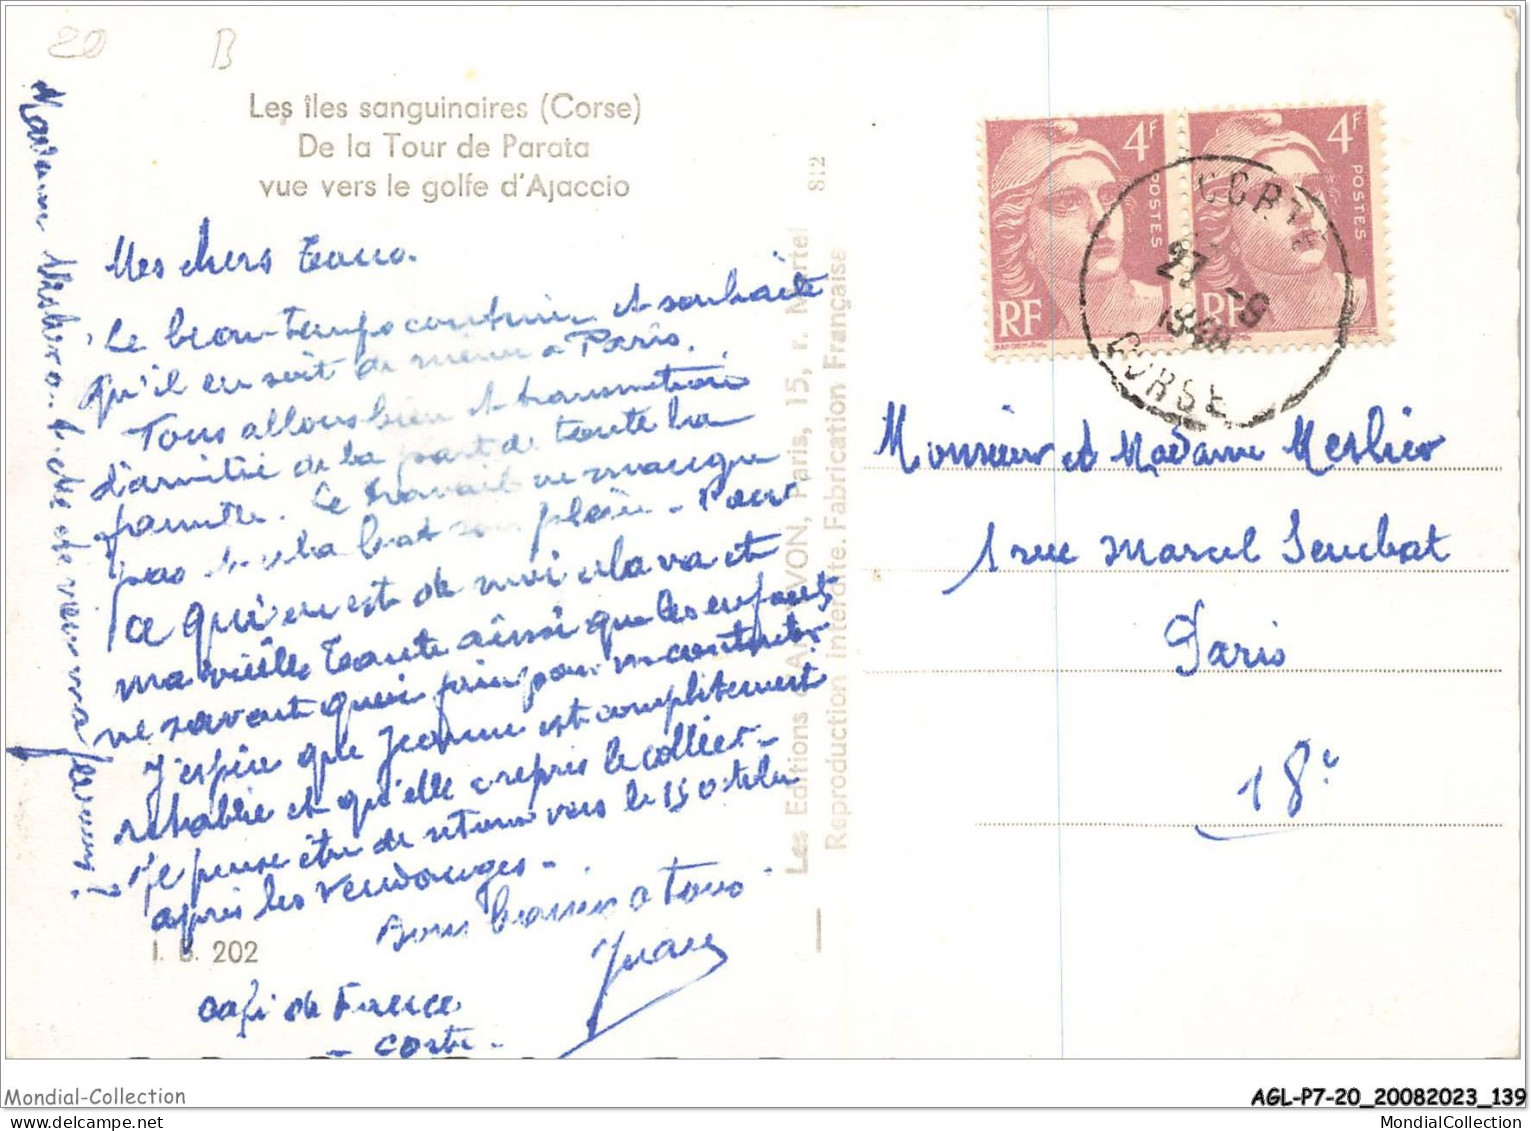 20 B
Les îles sanguinaires (Corse)
De la Tour de Parata
vue vers le golfe d'Ajaccio
Mes chers tous.
Le beau temps continue et souhaite
qu'il en soit de même a Paris.
Tous allons bien et transmettons
d'amitié de la part de toute la
famille. Le travail ne manque
pas bat son plein - Pour
ce qui en est de moi cela va et
ma vieille tante ainsi que les enfants
ne savent quoi faire pour m contenter.
J'espère que Jeanne est complètement
rétablie et qu'elle a repris le collier -
Je pense être de retour vers le 15 octobre
après les vendanges -
Bons baisers a tous
I. B. 202
Café de France
- Corte -
Madame
812
Les Editions d'Art YVON, Paris, 15, r. Martel
Reproduction interdite. Fabrication Française
4F
POSTES
RF
4F
POSTES
RF
CORTE
27 -9
CORSE
Monsieur et Madame Meslier
1 rue Marcel Senchat
Paris
18e
Mondial-Collection
AGL-P7-20_20082023_139
MondialCollection